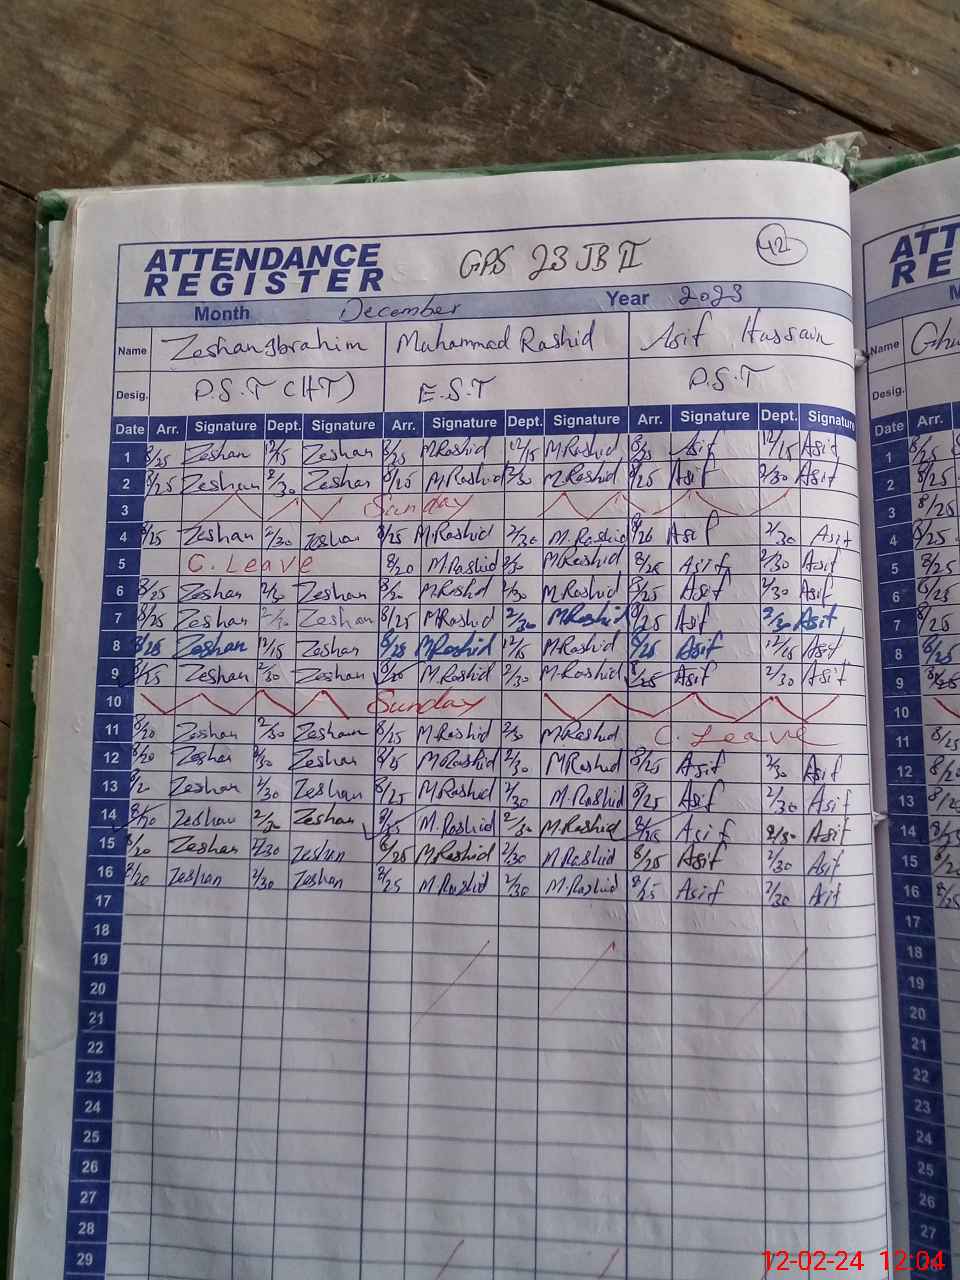 ATTENDANCE REGISTER GPS 23 JB II 42
Month December Year 2023
Name Zeshan Ibrahim Muhammad Rashid Asif Hussain
Desig. P.S.T (HT) E.S.T P.S.T
Date Arr. Signature Dept. Signature Arr. Signature Dept. Signature Arr. Signature Dept. Signature
1 8/25 Zeshan 12/15 Zeshan 8/25 M.Rashid 12/15 M.Rashid 8/25 Asif 12/15 Asif
2 8/25 Zeshan 2/30 Zeshan 8/25 M.Rashid 2/30 M.Rashid 8/25 Asif 2/30 Asif
3 Sunday
4 8/25 Zeshan 2/30 Zeshan 8/25 M.Rashid 2/30 M.Rashid 8/20 Asif 2/30 Asif
5 C. Leave 8/20 M.Rashid 2/30 M.Rashid 8/25 Asif 2/30 Asif
6 8/25 Zeshan 2/30 Zeshan 8/20 M.Rashid 2/30 M.Rashid 8/25 Asif 2/30 Asif
7 8/25 Zeshan 2/30 Zeshan 8/25 M.Rashid 2/30 M.Rashid 8/25 Asif 2/30 Asif
8 8/25 Zeshan 12/15 Zeshan 8/25 M.Rashid 12/15 M.Rashid 8/25 Asif 12/15 Asif
9 8/25 Zeshan 2/30 Zeshan 8/20 M.Rashid 2/30 M.Rashid 8/25 Asif 2/30 Asif
10 Sunday
11 8/20 Zeshan 2/30 Zeshan 8/25 M.Rashid 2/30 M.Rashid C. Leave
12 8/20 Zeshan 2/30 Zeshan 8/25 M.Rashid 2/30 M.Rashid 8/25 Asif 2/30 Asif
13 8/20 Zeshan 2/30 Zeshan 8/25 M.Rashid 2/30 M.Rashid 8/25 Asif 2/30 Asif
14 8/20 Zeshan 2/30 Zeshan 8/25 M.Rashid 2/30 M.Rashid 8/25 Asif 2/30 Asif
15 8/20 Zeshan 2/30 Zeshan 8/25 M.Rashid 2/30 M.Rashid 8/25 Asif 2/30 Asif
16 8/20 Zeshan 2/30 Zeshan 8/25 M.Rashid 2/30 M.Rashid 8/25 Asif 2/30 Asif
17
18
19
20
21
22
23
24
25
26
27
28
29
Name
Desig.
Date Arr.
1 8/25
2 8/25
3 8/25
4 8/25
5 8/25
6 8/25
7 8/20
8 8/25
9 8/25
10
11 8/25
12 8/20
13 8/20
14 8/25
15 8/20
16 8/25
17
18
19
20
21
22
23
24
25
26
27
12-02-24 12:04